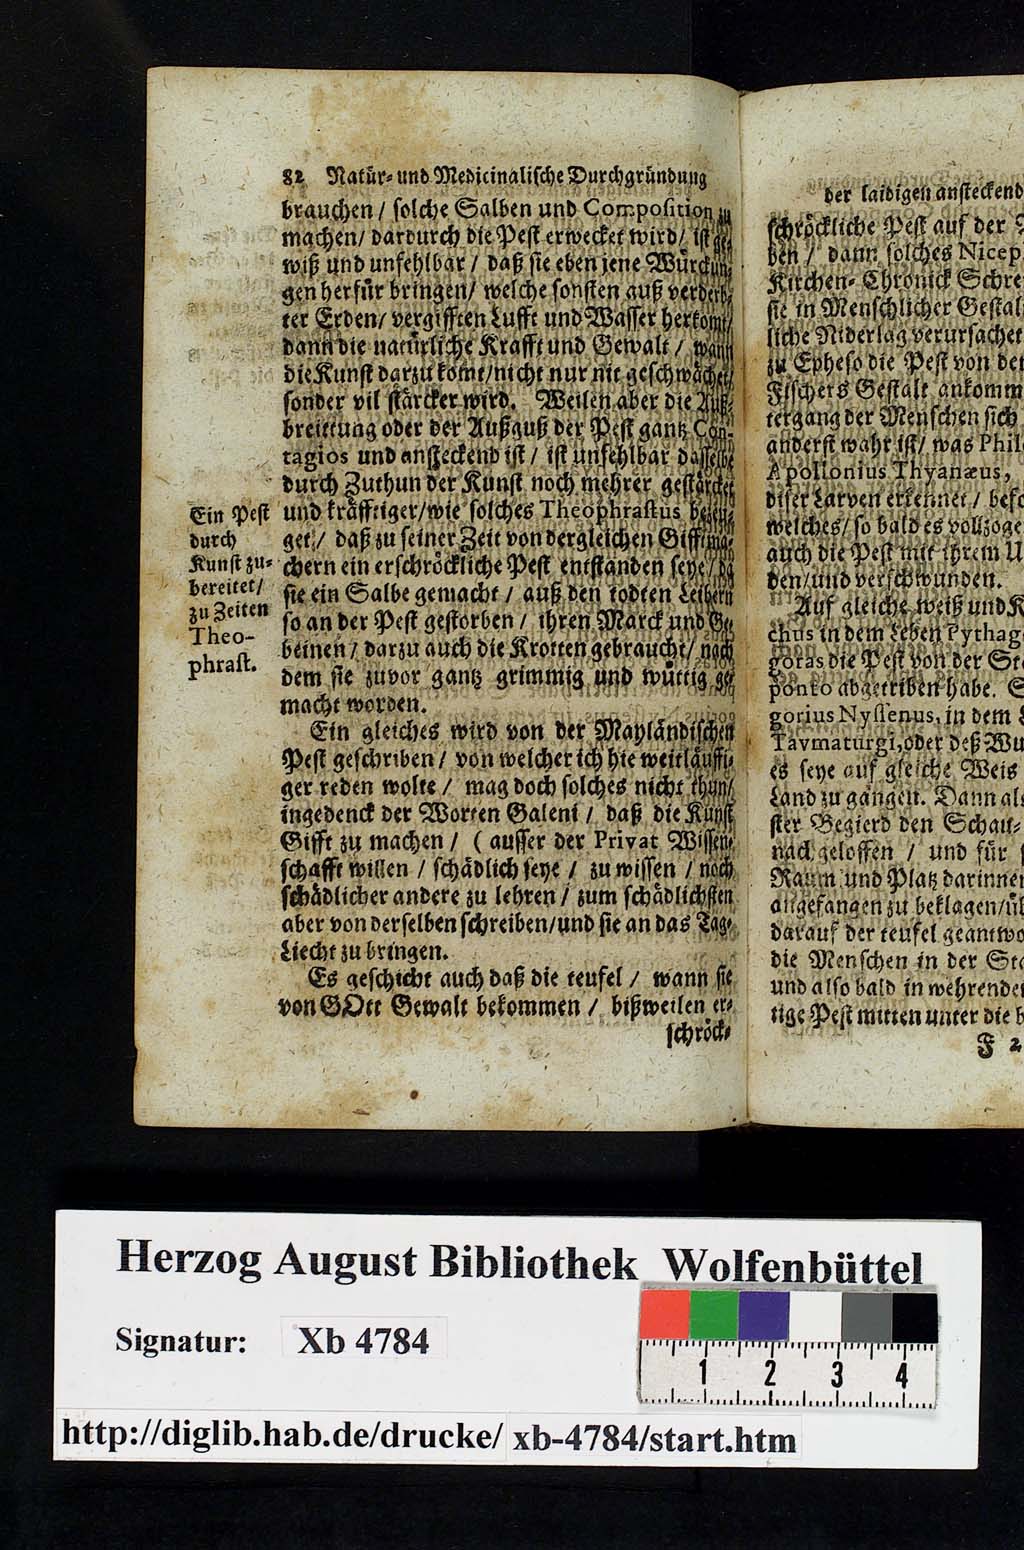 82 Natür- und Medicinalische Durchgründung
brauchen / solche Salben und Composition zu
machen/ dardurch die Pest erwecket wird/ ist ge-
wiß und unfehlbar / daß sie eben jene Würckun-
gen herfür bringen/ welche sonsten auß verderb-
ter Erden/ vergifften Lufft und Wasser herkomt/
dann die natürliche Krafft und Gewalt / wann
die Kunst darzu komt/nicht nur nit geschwächet/
sonder vil stärcker wird. Weilen aber die Auß-
breittung oder der Außguß der Pest gantz Con-
tagios und ansteckend ist / ist unfehlbar dasselbe
durch Zuthun der Kunst noch mehrer gestärcket
und kräfftiger/wie solches Theophrastus bezeu-
get / daß zu seiner Zeit von dergleichen Gifftma-
chern ein erschröckliche Pest entstanden seye/ da
sie ein Salbe gemacht / auß den todten Leibern
so an der Pest gestorben / ihren Marck und Ge-
beinen / darzu auch die Krotten gebraucht/ nach
dem sie zuvor gantz grimmig und wüttig ge-
macht worden.
Ein Pest
durch
Kunst zu-
bereitet/
zu Zeiten
Theo-
phrast.
Ein gleiches wird von der Mayländischen
Pest geschriben / von welcher ich hie weitläuffi-
ger reden wolte / mag doch solches nicht thun/
ingedenck der Worten Galeni / daß die Kunst
Gifft zu machen / ( ausser der Privat Wissen-
schafft willen / schädlich seye / zu wissen / noch
schädlicher andere zu lehren / zum schädlichsten
aber von derselben schreiben/und sie an das Tag-
Liecht zu bringen.
Es geschicht auch daß die teufel / wann sie
von GOtt Gewalt bekommen / bißweilen er-
schröck-
der laidigen ansteckend
schröckliche Pest auf der
ben / dann solches Nicep
Kirchen- Chronick Schre
sie in Menschlicher Gestal
liche Niderlag verursachet
zu Epheso die Pest von de
Fischers Gestalt ankomm
tergang der Menschen sich
anderst wahr ist/ was Phil
Apollonius Thyanæus,
diser Larven erkennet / bef
welches/ so bald es vollzoge
auch die Pest mit ihrem U
den/und verschwunden.
Auf gleiche weiß und K
chus in dem Leben Pythag
goras die Pest von der Sta
ponto abgetriben habe. S
gorius Nyssenus, in dem L
Tavmaturgi, oder deß Wu
es seye auf gleiche Weis
Land zu gangen. Dann als
ster Begierd den Schau-
nach geloffen / und für
Raum und Platz darinnen
angefangen zu beklagen/üb
darauf der teufel geantwo
die Menschen in der Sta
und also bald in wehrende
tige Pest mitten unter die b
F 2
Herzog August Bibliothek Wolfenbüttel
Signatur: Xb 4784
1 2 3 4
http://diglib.hab.de/drucke/ xb-4784/start.htm